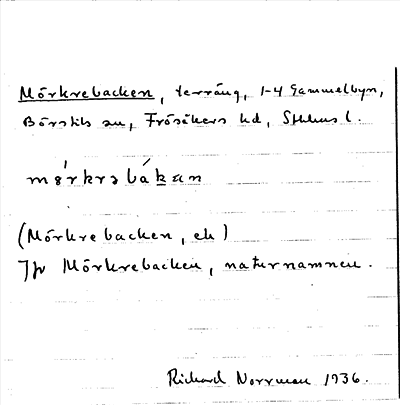 Mörkrebacken, terräng, 1-4 Gammelbyn,
Börstils sn, Frösåkers hd, Sthlms l.
mǿrkrəbákan
(Mörkrebacken, ek)
Jfr Mörkrebacken, naturnamnen.
Richard Norrman 1936.